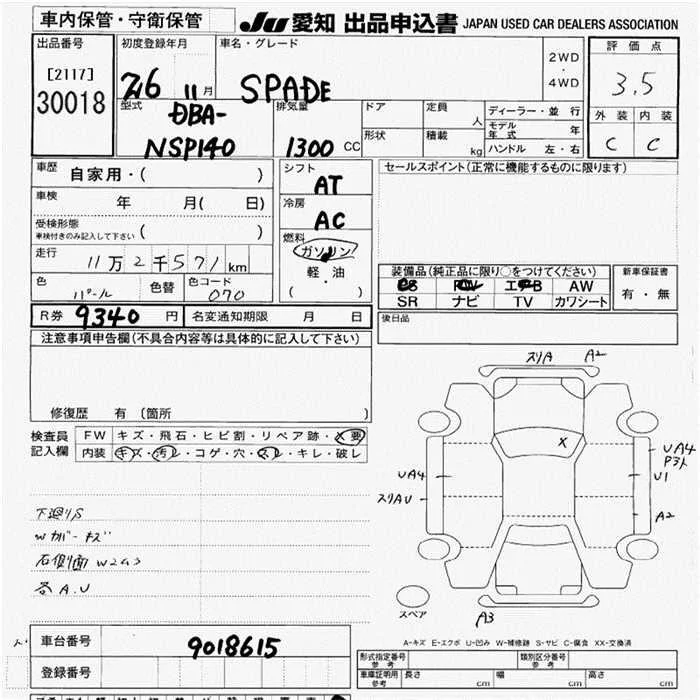 車内保管・守衛保管
JU 愛知 出品申込書 JAPAN USED CAR DEALERS ASSOCIATION
出品番号
[2117]
30018
初度登録年月
26 11月
車名・グレード
SPADE
2WD
・
4WD
評価点
3.5
外装 内装
C C
型式
DBA-
NSP140
排気量
1300 CC
ドア
定員 人
形状
積載 kg
ディーラー・並行
モデル年式 年
ハンドル 左・右
車歴
自家用・( )
車検
年 月( 日)
受検形態
車検付きのみ記入して下さい ( )
走行
11万2千571km
色
パール
色替
色コード
070
シフト
AT
冷房
AC
燃料
ガソリン
軽・油
( )
セールスポイント(正常に機能するものに限ります)
装備品(純正品に限り○をつけてください)
AW
SR ナビ TV カワシート
新車保証書
有・無
R券 9340 円
名変通知期限 月 日
後日品
注意事項申告欄(不具合内容等は具体的に記入して下さい)
修復歴 有 (箇所 )
検査員
記入欄
FW キズ・飛石・ヒビ割・リペア跡・X要
内装 キズ・汚レ・コゲ・穴・スレ・キレ・破レ
下廻りS
Wガーキズ
右側面 W2ム3
各A.U
スリA A2
X
UA4
スリAU
UA4
P3ト
U1
A2
スペア
A3
A-キズ E-エクボ U-凹み W-補修跡 S-サビ C-腐食 XX-交換済
車台番号
9018615
登録番号
形式指定番号
参考
類別区分番号
参考
車庫証明用
参考
長さ cm
幅 cm
高さ cm